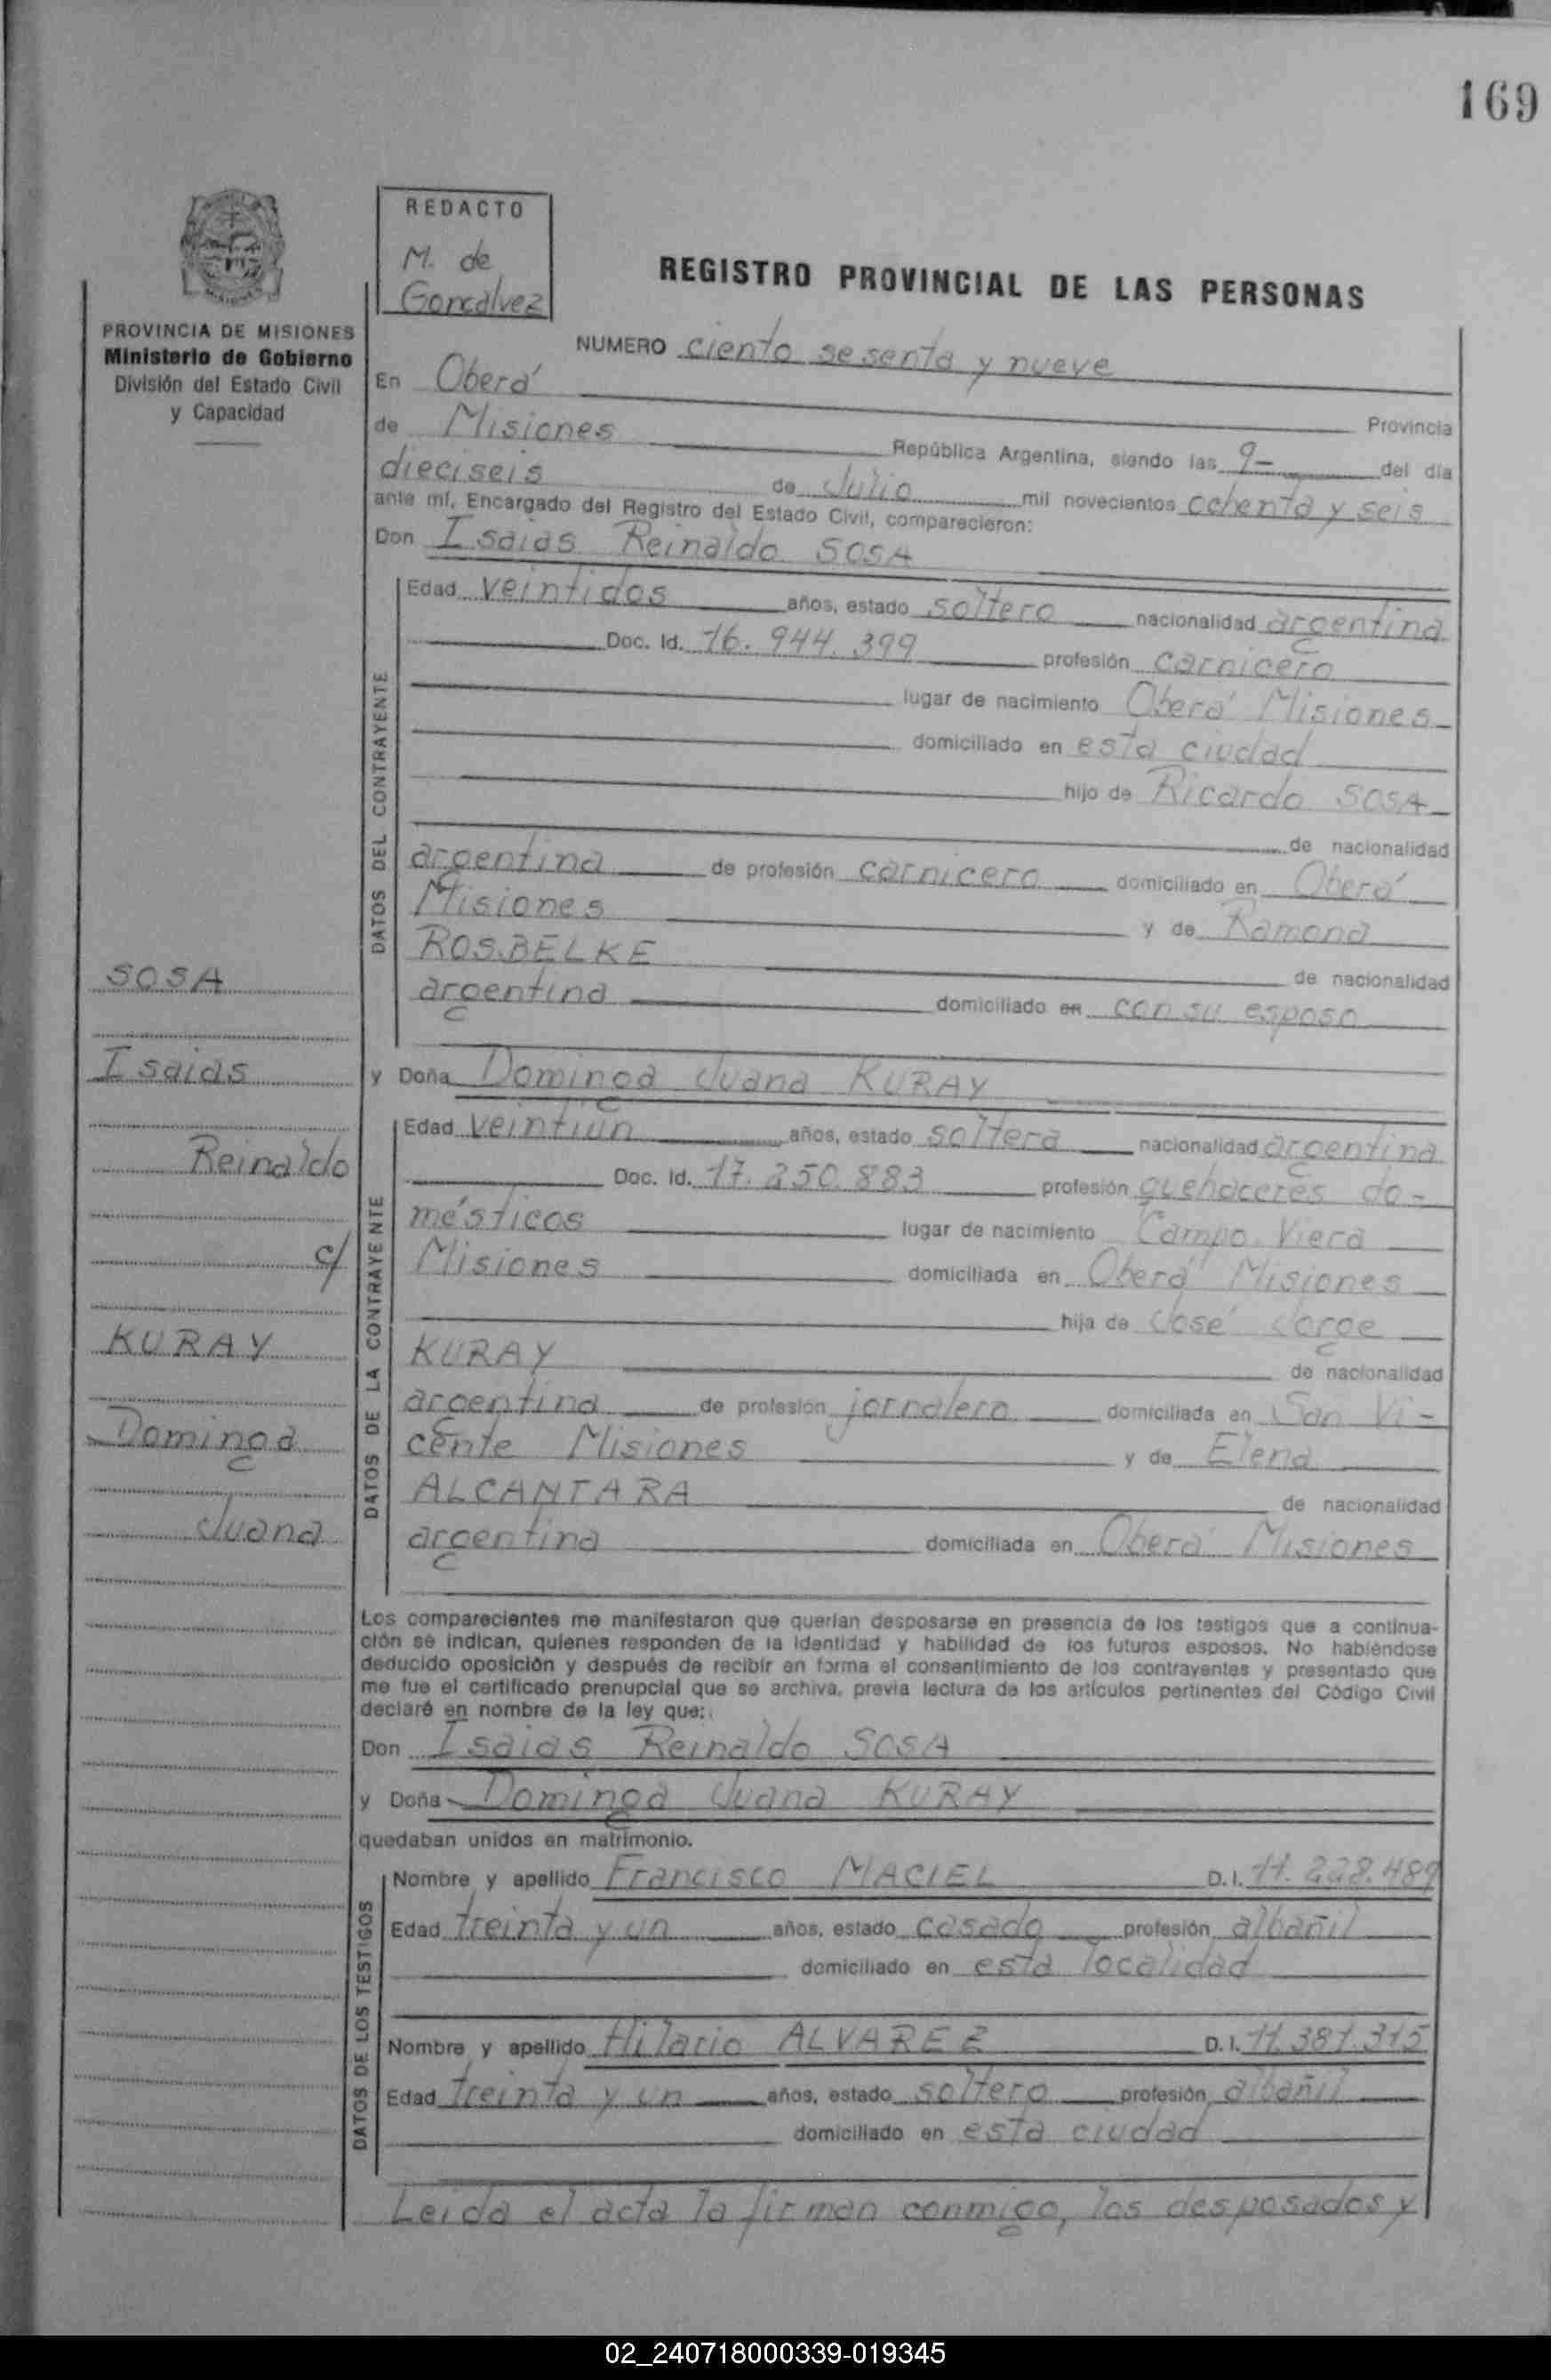 169
REDACTO
M. de
Goncalvez
REGISTRO PROVINCIAL DE LAS PERSONAS
PROVINCIA DE MISIONES
Ministerio de Gobierno
División del Estado Civil
y Capacidad
NUMERO ciento sesenta y nueve
En Oberá Provincia
de Misiones República Argentina, siendo las 9- del día
dieciseis de Julio mil novecientos ochenta y seis
ante mí, Encargado del Registro del Estado Civil, comparecieron:
Don Isaias Reinaldo SOSA
DATOS DEL CONTRAYENTE
Edad veintidos años, estado soltero nacionalidad argentina
Doc. Id. 16.944.399 profesión carnicero
lugar de nacimiento Oberá Misiones
domiciliado en esta ciudad
hijo de Ricardo SOSA
de nacionalidad
argentina de profesión carnicero domiciliado en Oberá
Misiones y de Ramona
ROSBELKE de nacionalidad
argentina domiciliado en con su esposo
SOSA
Isaias
Reinaldo
c/
KURAY
Dominga
Juana
y Doña Dominga Juana KURAY
DATOS DE LA CONTRAYENTE
Edad veintiún años, estado soltera nacionalidad argentina
Doc. Id. 17.250.883 profesión quehaceres do-
mésticos lugar de nacimiento Campo Viera
Misiones domiciliada en Oberá Misiones
hija de José Jorge
KURAY de nacionalidad
argentina de profesión jornalero domiciliada en San Vi-
cente Misiones y de Elena
ALCANTARA de nacionalidad
argentina domiciliada en Oberá Misiones
Los comparecientes me manifestaron que querían desposarse en presencia de los testigos que a continua-
ción se indican, quienes responden de la identidad y habilidad de los futuros esposos. No habiéndose
deducido oposición y después de recibir en forma el consentimiento de los contrayentes y presentado que
me fue el certificado prenupcial que se archiva, previa lectura de los artículos pertinentes del Código Civil
declaré en nombre de la ley que:
Don Isaias Reinaldo SOSA
y Doña Dominga Juana KURAY
quedaban unidos en matrimonio.
DATOS DE LOS TESTIGOS
Nombre y apellido Francisco MACIEL D.I. 11.228.489
Edad treinta y un años, estado casado profesión albañil
domiciliado en esta localidad
Nombre y apellido Hilario ALVAREZ D.I. 11.381.315
Edad treinta y un años, estado soltero profesión albañil
domiciliado en esta ciudad
Leida el acta la firman conmigo, los desposados y
02_240718000339-019345